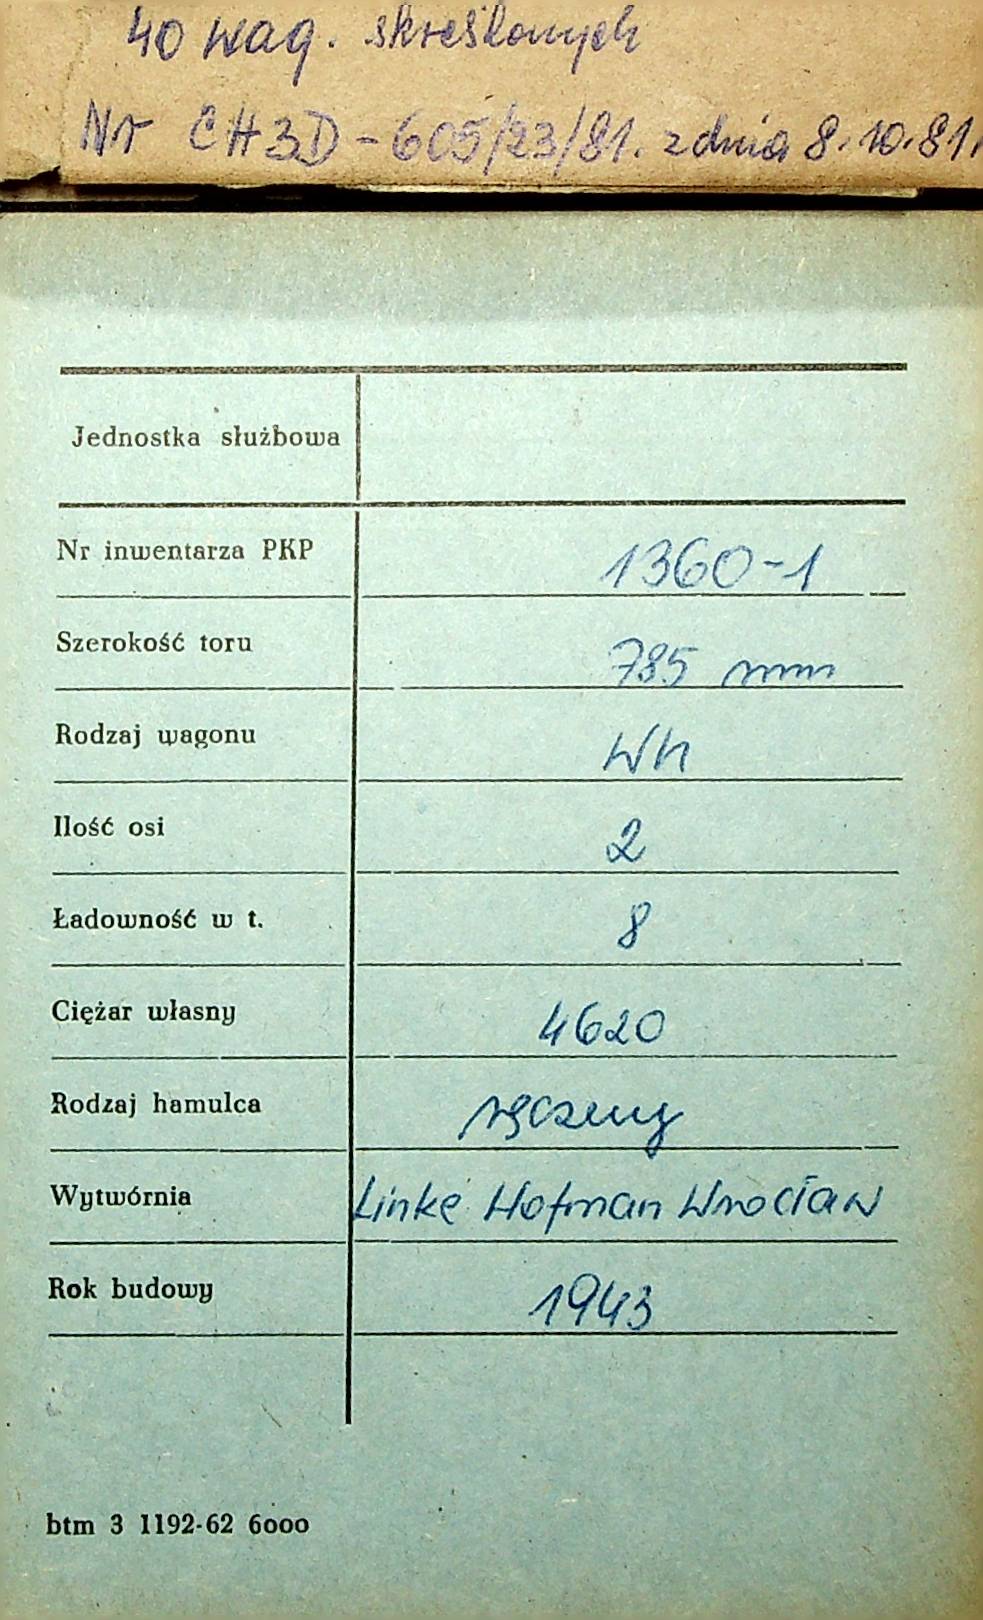 40 wag. skreślonych
Nr CH3D-605/23/81. z dnia 8.10.81.
Jednostka służbowa
Nr inwentarza PKP 1360-1
Szerokość toru 785 mm
Rodzaj wagonu Wh
Ilość osi 2
Ładowność w t. 8
Ciężar własny 4620
Rodzaj hamulca ręczny
Wytwórnia Linke Hofman Wrocław
Rok budowy 1943
btm 3 1192-62 6000